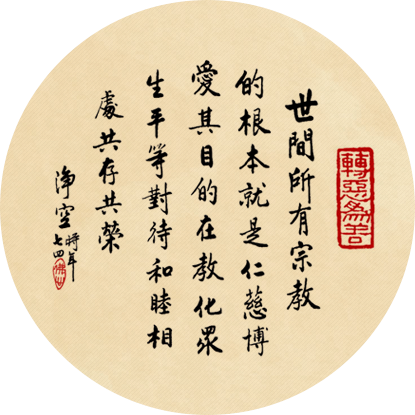 轉惡為善
世間所有宗教
的根本就是仁慈博
愛其目的在教化眾
生平等對待和睦相
處共存共榮
淨空
時年
七四